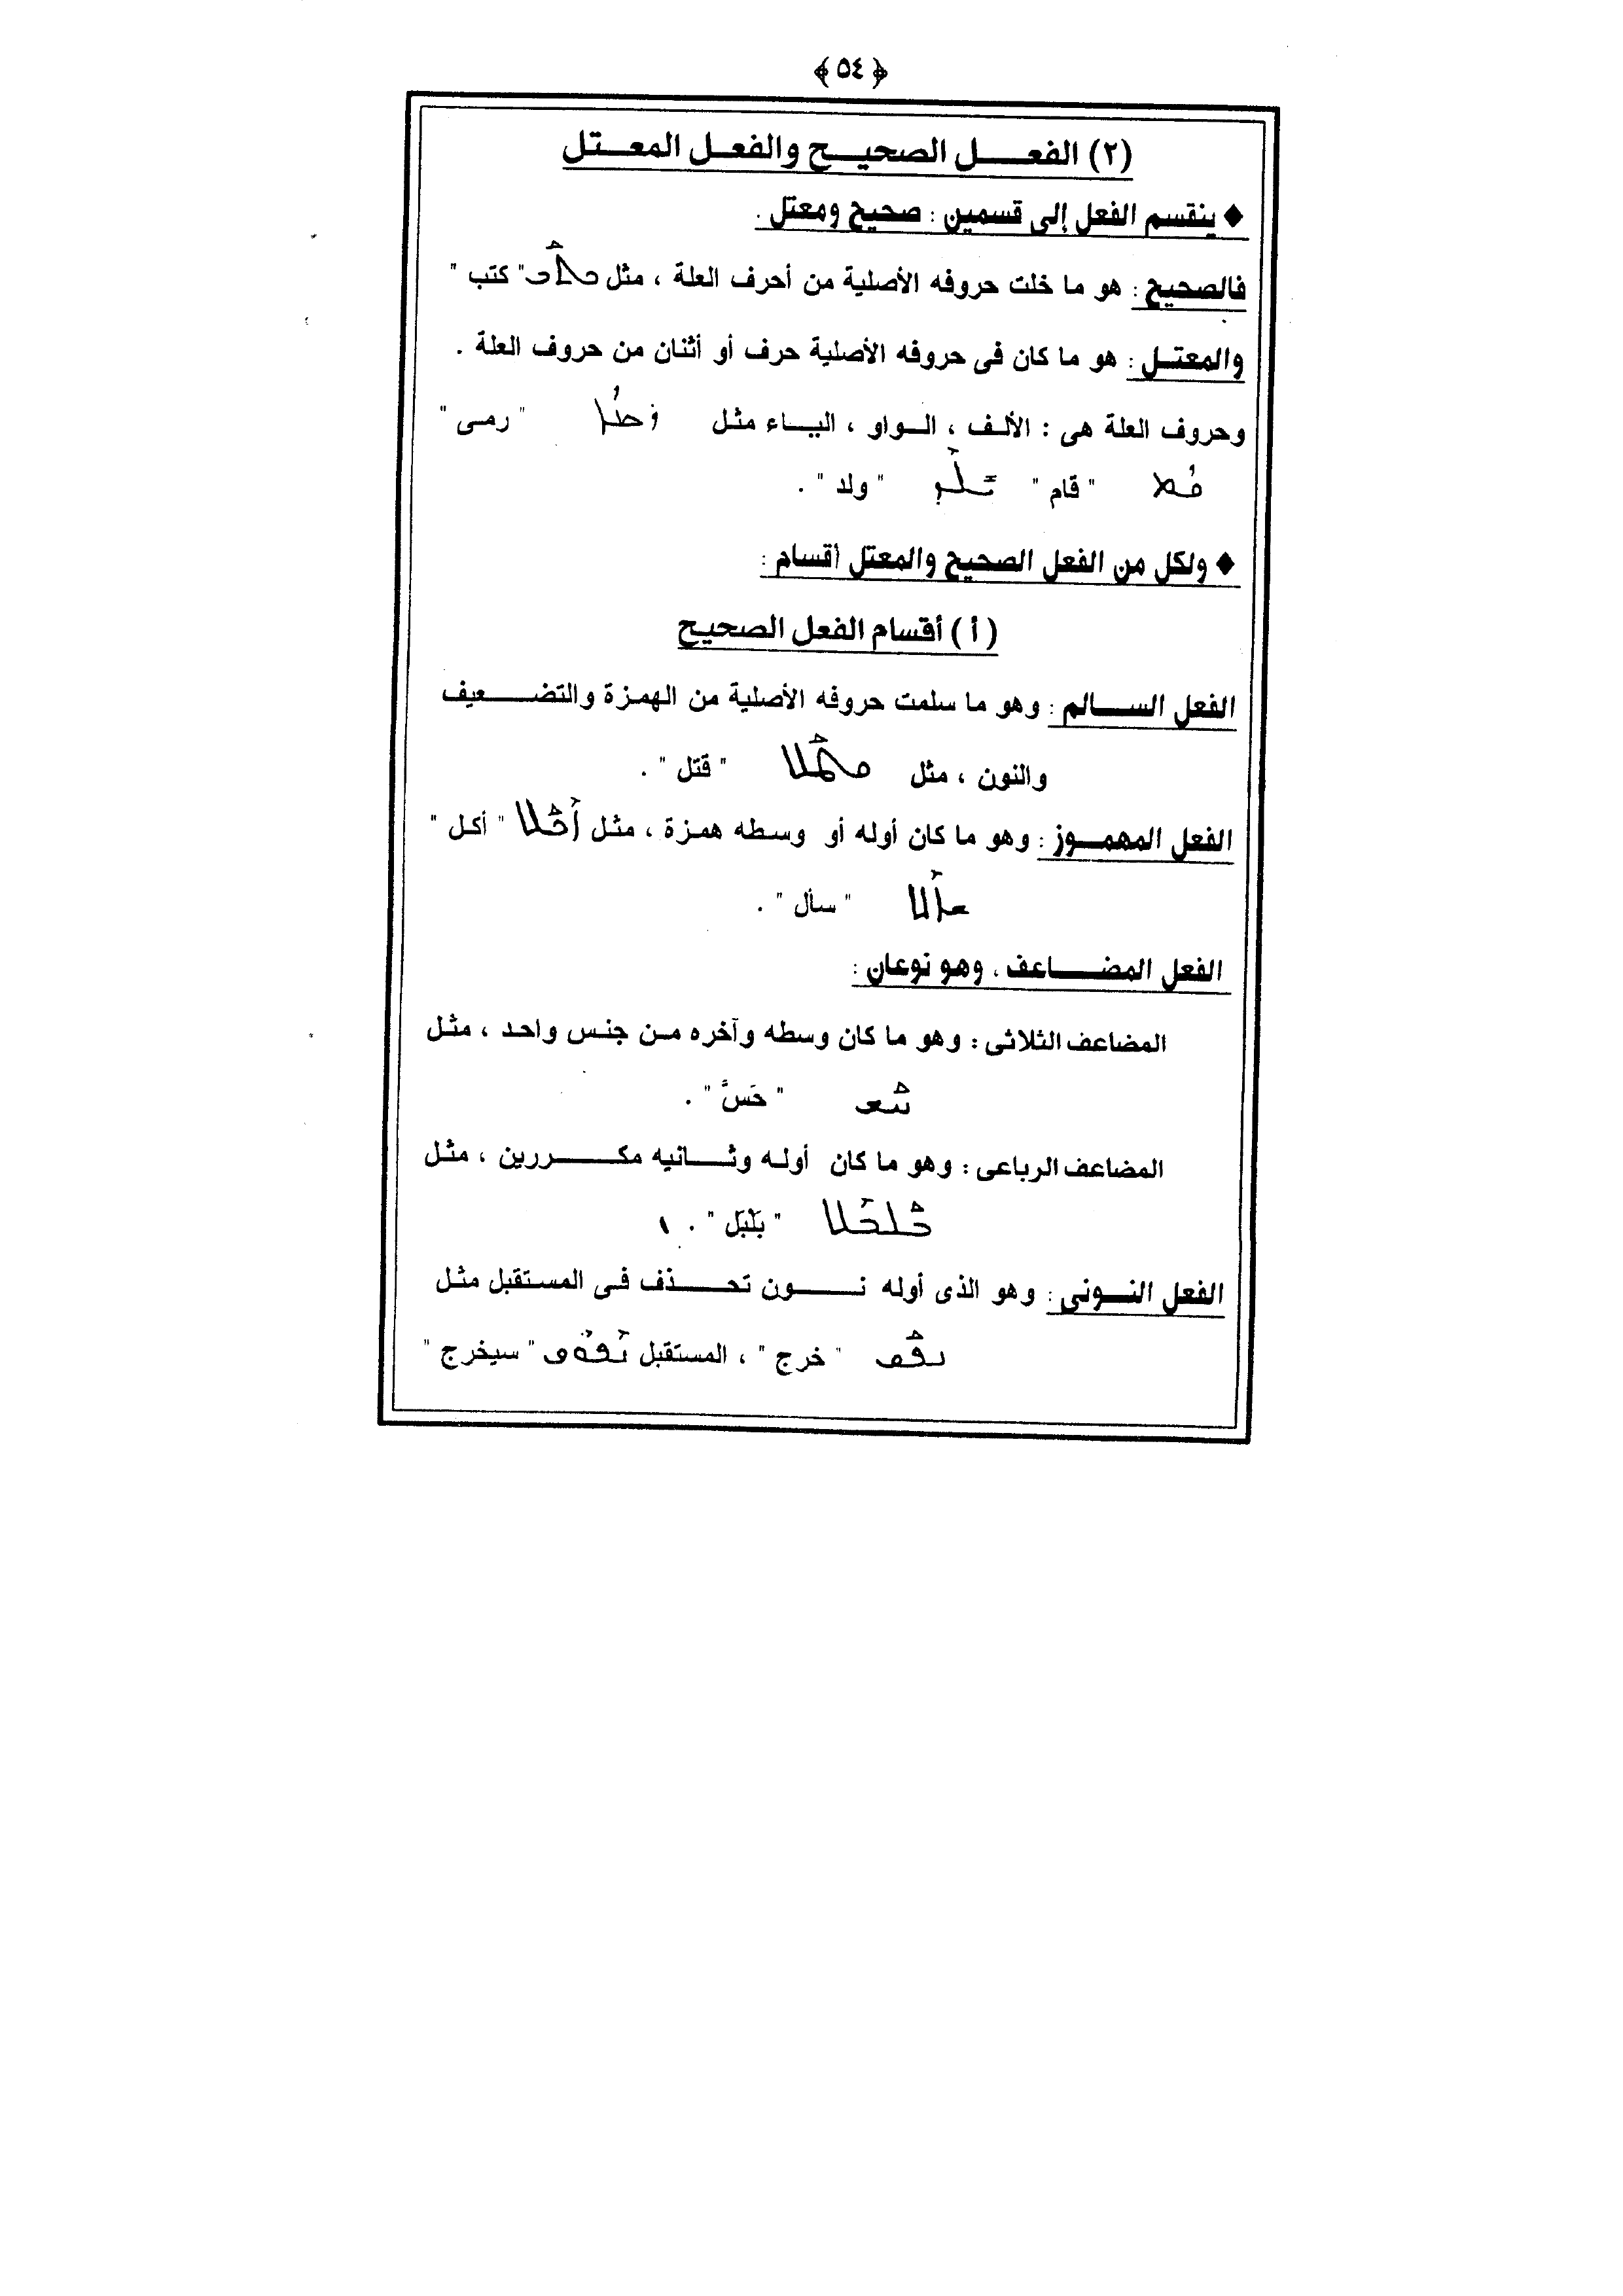 ﴿ ٥٤ ﴾
(٢) الفعـــل الصحيـــح والفعـل المعـتل
♦ ينقسم الفعل إلى قسمين : صحيح ومعتل .
فالصحيح : هو ما خلت حروفه الأصلية من أحرف العلة ، مثل ܟܬܒ " كتب "
والمعتـل : هو ما كان فى حروفه الأصلية حرف أو أثنان من حروف العلة .
وحروف العلة هى : الألف ، الـواو ، اليـاء مثـل " رمـى "
ܩܡ " قام " ܝܠܕ " ولد " .
♦ ولكل من الفعل الصحيح والمعتل أقسام :
( أ ) أقسام الفعل الصحيح
الفعل الســالم : وهو ما سلمت حروفه الأصلية من الهمزة والتضـــعيف
والنون ، مثل ܩܛܠ " قتل " .
الفعل المهمــوز : وهو ما كان أوله أو وسطه همزة ، مثل ܐܟܠ " أكل "
ܫܐܠ " سأل " .
الفعل المضـــاعف ، وهو نوعان :
المضاعف الثلاثى : وهو ما كان وسطه وآخره مـن جنـس واحـد ، مثـل
" حَسَّ " .
المضاعف الرباعى : وهو ما كان أولـه وثــانيه مكـــررين ، مثـل
ܒܠܒܠ " بَلْبَل " .
الفعل النــونى : وهو الذى أوله نــــون تحـــذف فـى المستقبل مثـل
ܢܦܩ " خرج " ، المستقبل ܢܦܘܩ " سيخرج "